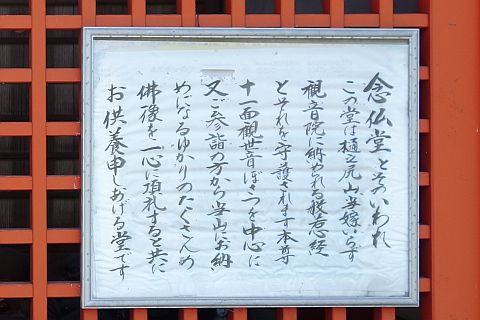 念仏堂とそのいわれ
この堂は樋之尻山嫁いらず
観音院に納められる般若経
とそれを守護されます本尊
十一面観世音ぼさつを中心に
又ご参詣の方から当山にお納
めになるゆかりのたくさんの
佛像を一心に頂礼すると共に
お供養申しあげる堂です